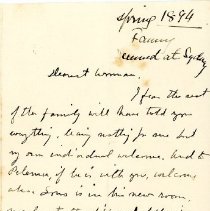 Spring 1894
Fanny
at Sydney
Dearest woman,
I fear the rest
of the family will have told you
everything, leaving nothing for me but
my own individual welcome. And to
Palema, if he is with you, welcome
also. Louis is in his new room,